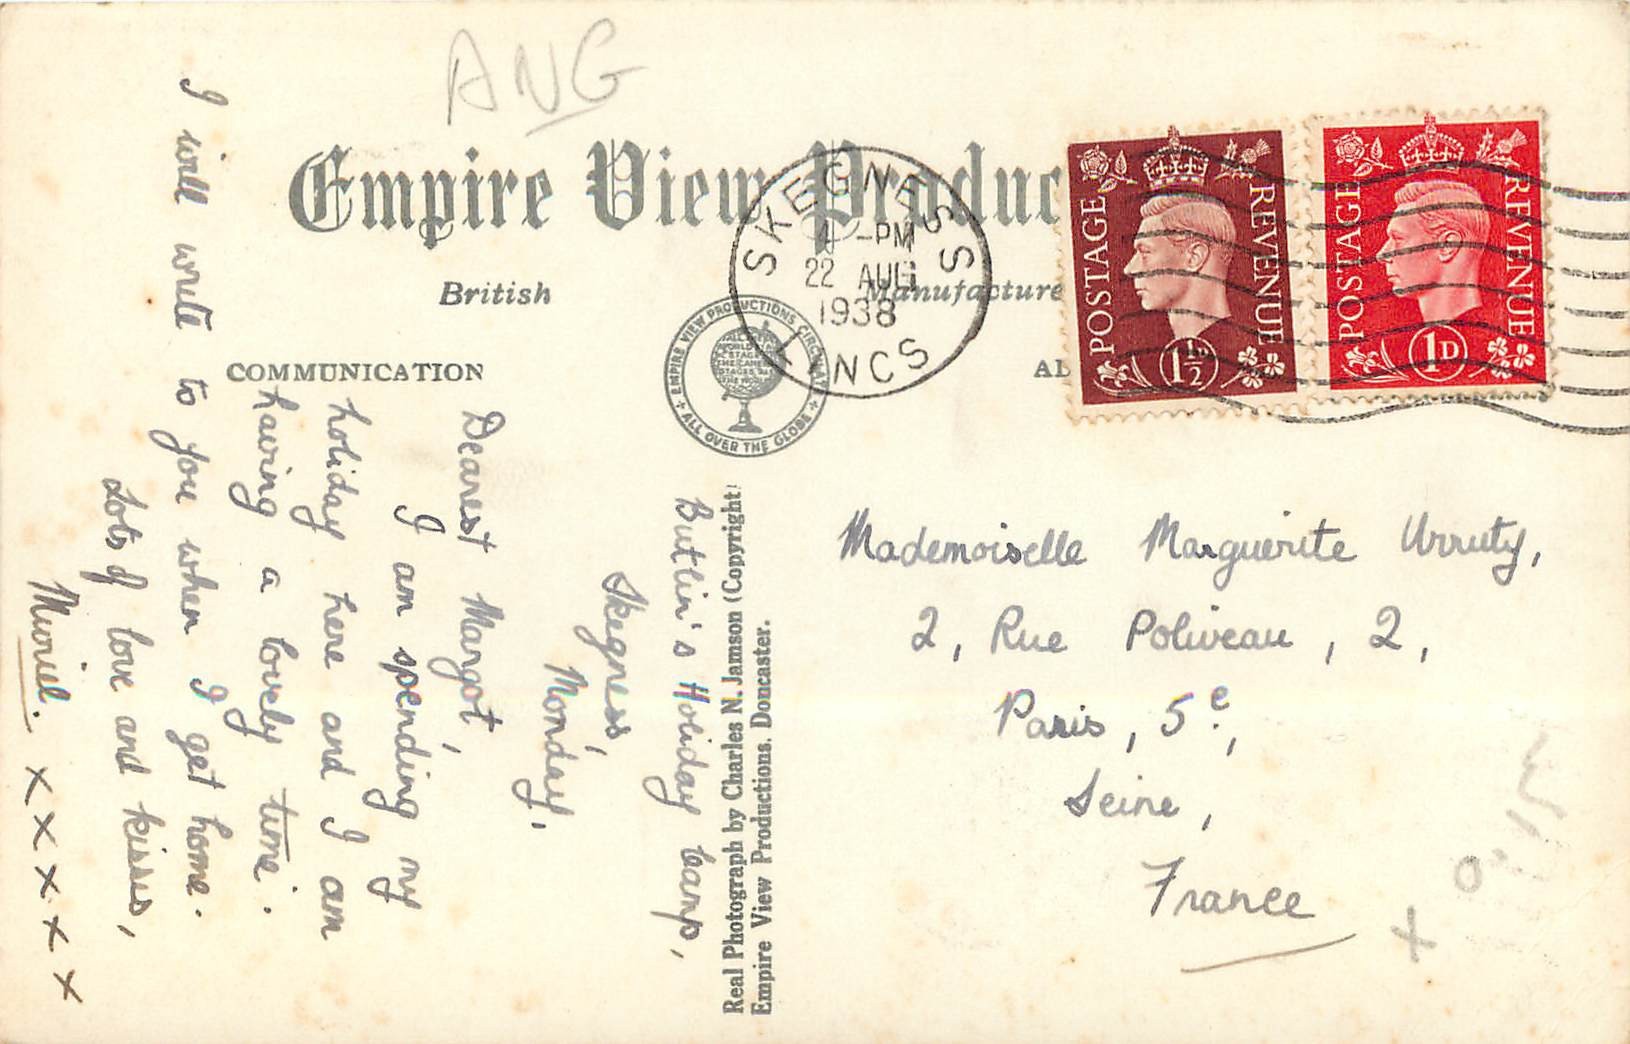 ANG
Empire View Produc
British Manufacture
COMMUNICATION
AD
SKEGNESS
4 -PM
22 AUG
1938
LINCS
EMPIRE VIEW PRODUCTIONS
ALL OVER THE GLOBE
POSTAGE REVENUE
1½D
POSTAGE REVENUE
1D
Butlin's Holiday Camp,
Skegness,
Monday,
Dearest Margot,
I am spending my
holiday here and I am
having a lovely time.
I will write to you when I get home.
Lots of love and kisses,
Muriel. x x x x x
Real Photograph by Charles N. Jamson (Copyright)
Empire View Productions. Doncaster.
Mademoiselle Marguerite Urruty,
2, Rue Poliveau, 2,
Paris, 5e,
Seine,
France